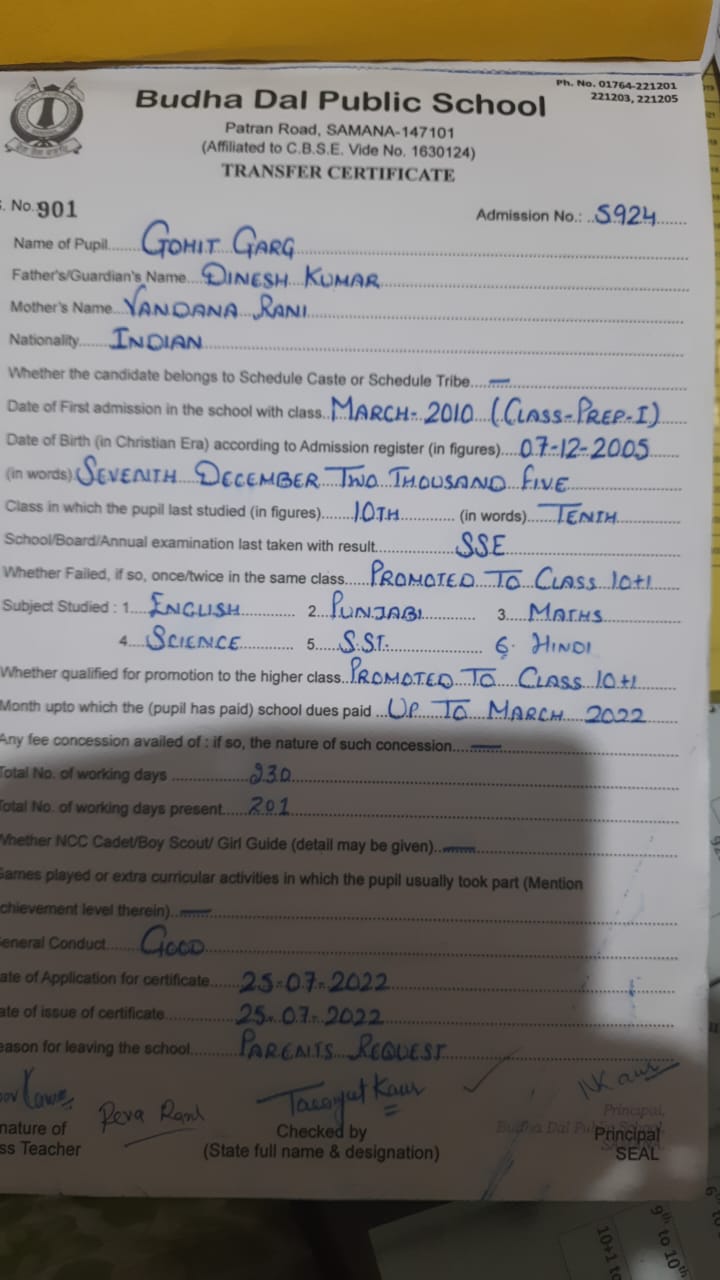 Ph. No. 01764-221201
221203, 221205
Budha Dal Public School
Patran Road, SAMANA-147101
(Affiliated to C.B.S.E. Vide No. 1630124)
TRANSFER CERTIFICATE
. No. 901
Admission No.: 5924
Name of Pupil GOHIT GARG
Father's/Guardian's Name DINESH KUMAR
Mother's Name VANDANA RANI
Nationality INDIAN
Whether the candidate belongs to Schedule Caste or Schedule Tribe —
Date of First admission in the school with class MARCH-2010 (CLASS-PREP-I)
Date of Birth (in Christian Era) according to Admission register (in figures) 07-12-2005
(in words) SEVENTH DECEMBER TWO THOUSAND FIVE
Class in which the pupil last studied (in figures) 10TH (in words) TENTH
School/Board/Annual examination last taken with result SSE
Whether Failed, if so, once/twice in the same class PROMOTED TO CLASS 10+1
Subject Studied : 1. ENGLISH 2. PUNJABI 3. MATHS
4. SCIENCE 5. S.ST. 6. HINDI
Whether qualified for promotion to the higher class PROMOTED TO CLASS 10+1
Month upto which the (pupil has paid) school dues paid UP TO MARCH 2022
Any fee concession availed of : if so, the nature of such concession —
Total No. of working days 230
Total No. of working days present 201
Whether NCC Cadet/Boy Scout/ Girl Guide (detail may be given) —
Games played or extra curricular activities in which the pupil usually took part (Mention
chievement level therein) —
eneral Conduct GOOD
ate of Application for certificate 25-07-2022
ate of issue of certificate 25-07-2022
eason for leaving the school PARENTS REQUEST
Kaur
Principal,
Budha Dal Public School,
nature of
ss Teacher
Checked by
(State full name & designation)
Principal
SEAL
9th to 10th
10+1 to